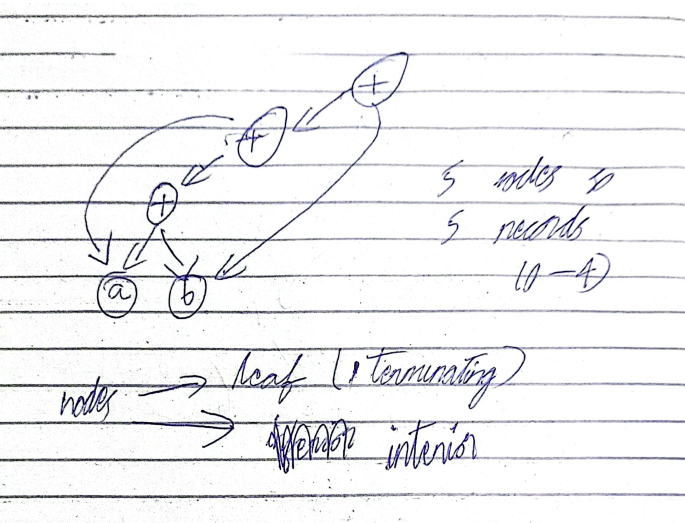 +
+
+
a b
5 nodes so
5 records
(0-4)
nodes → leaf (terminating)
→ interior